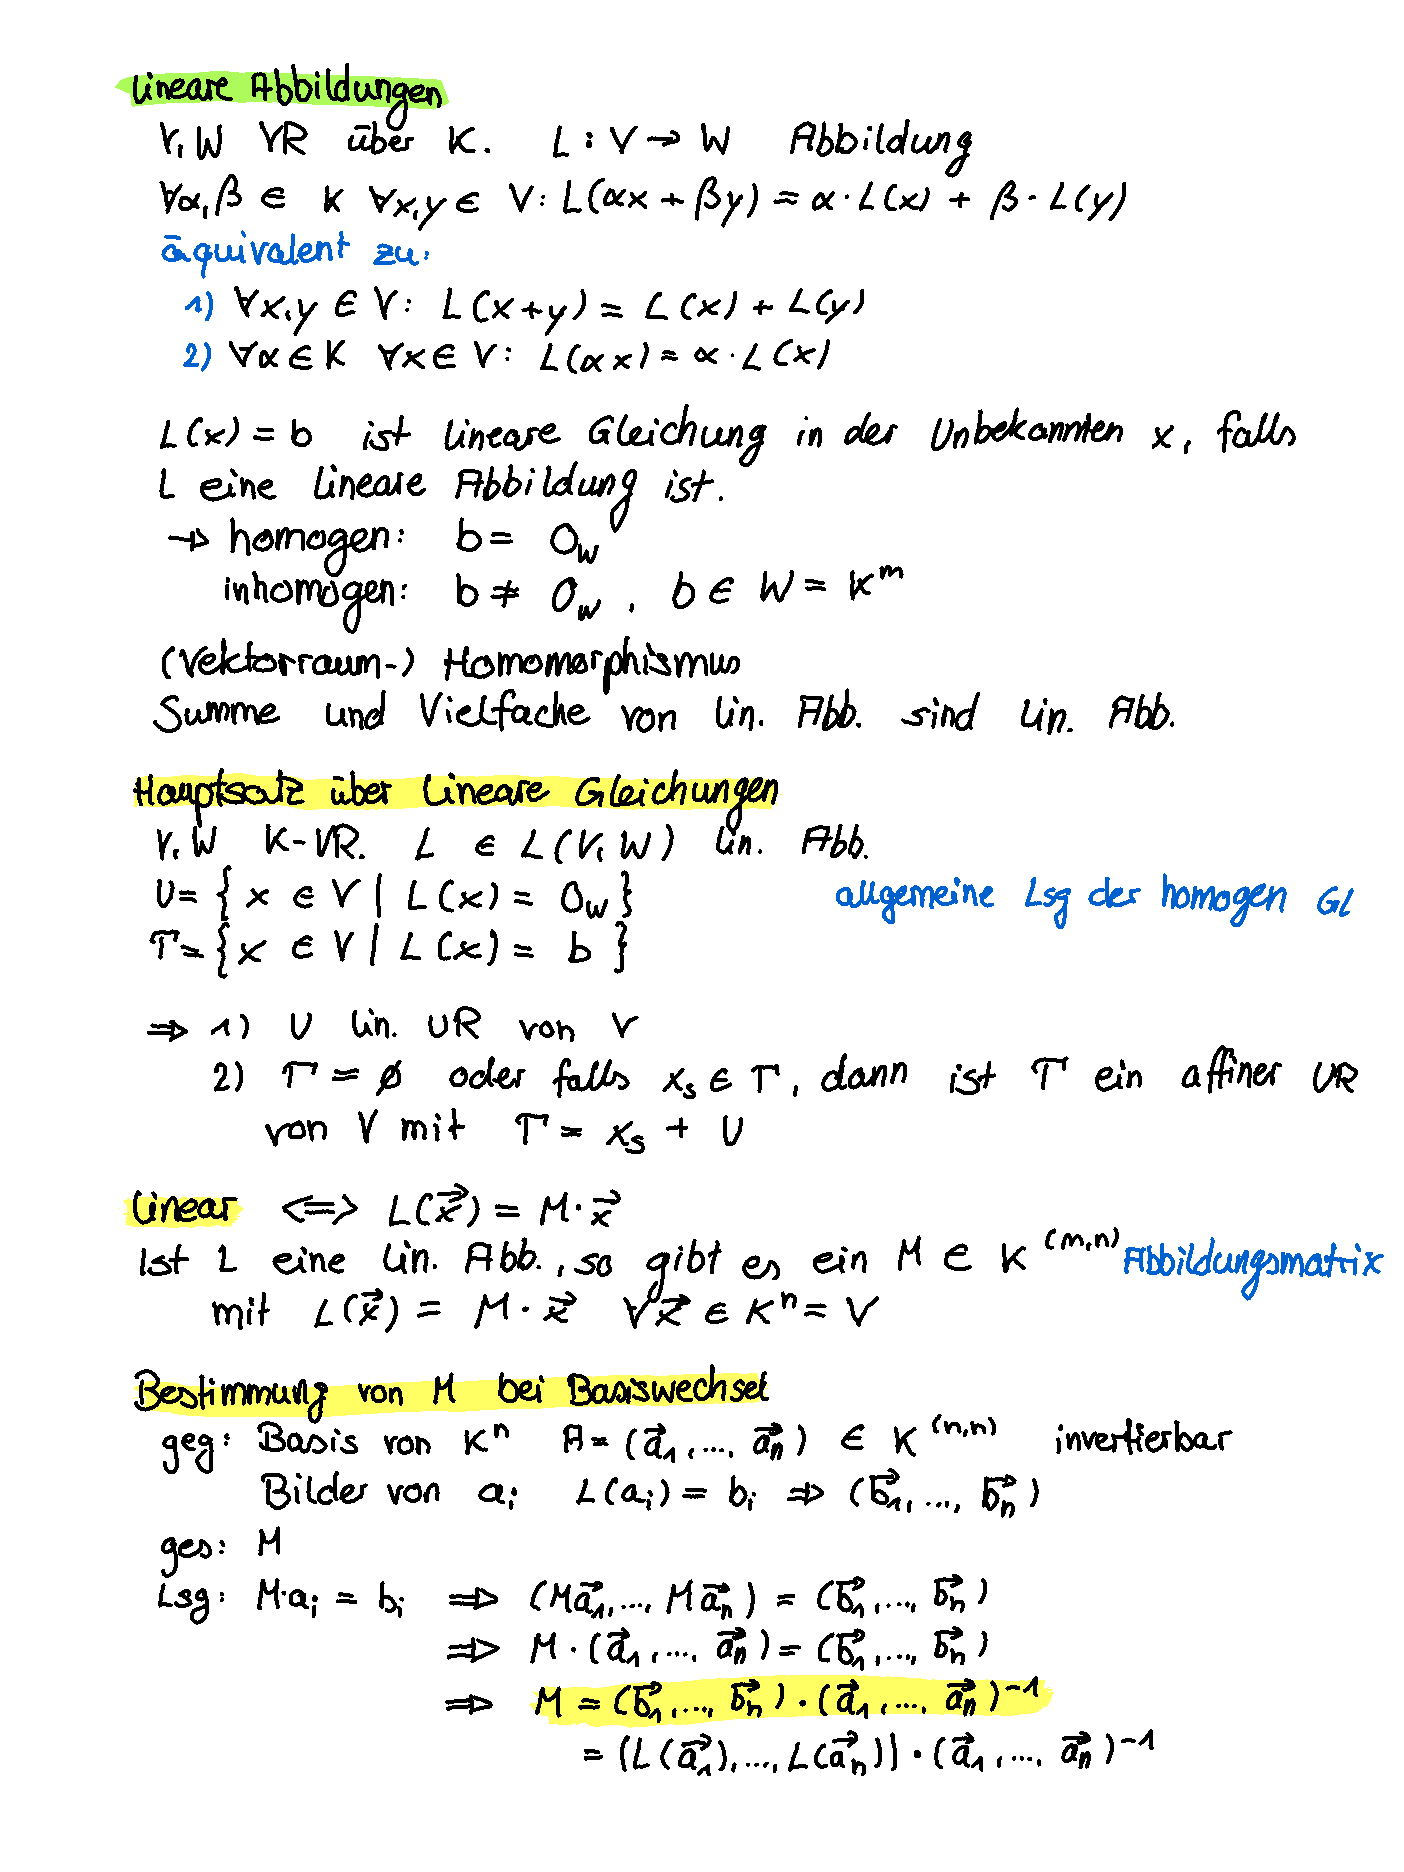 Lineare Abbildungen
V, W VR über K. L : V → W Abbildung
∀α, β ∈ K ∀x,y ∈ V: L(αx + βy) = α · L(x) + β · L(y)
äquivalent zu:
1) ∀x,y ∈ V: L(x+y) = L(x) + L(y)
2) ∀α ∈ K ∀x ∈ V: L(αx) = α · L(x)
L(x) = b ist lineare Gleichung in der Unbekannten x, falls
L eine lineare Abbildung ist.
→ homogen: b = 0_W
inhomogen: b ≠ 0_W, b ∈ W = K^m
(Vektorraum-) Homomorphismus
Summe und Vielfache von lin. Abb. sind lin. Abb.
Hauptsatz über lineare Gleichungen
V, W K-VR. L ∈ L(V, W) lin. Abb.
U = { x ∈ V | L(x) = 0_W } allgemeine Lsg der homogen Gl
T = { x ∈ V | L(x) = b }
⇒ 1) U lin. UR von V
2) T = ∅ oder falls x_s ∈ T, dann ist T ein affiner UR
von V mit T = x_s + U
linear ⇔ L(x⃗) = M · x⃗
Ist L eine lin. Abb., so gibt es ein M ∈ K^(m,n) Abbildungsmatrix
mit L(x⃗) = M · x⃗ ∀x⃗ ∈ K^n = V
Bestimmung von M bei Basiswechsel
geg: Basis von K^n A = (a⃗_1, ..., a⃗_n) ∈ K^(n,n) invertierbar
Bilder von a_i L(a_i) = b_i ⇒ (b⃗_1, ..., b⃗_n)
ges: M
Lsg: M·a_i = b_i ⇒ (Ma⃗_1, ..., Ma⃗_n) = (b⃗_1, ..., b⃗_n)
⇒ M · (a⃗_1, ..., a⃗_n) = (b⃗_1, ..., b⃗_n)
⇒ M = (b⃗_1, ..., b⃗_n) · (a⃗_1, ..., a⃗_n)^-1
= (L(a⃗_1), ..., L(a⃗_n)) · (a⃗_1, ..., a⃗_n)^-1